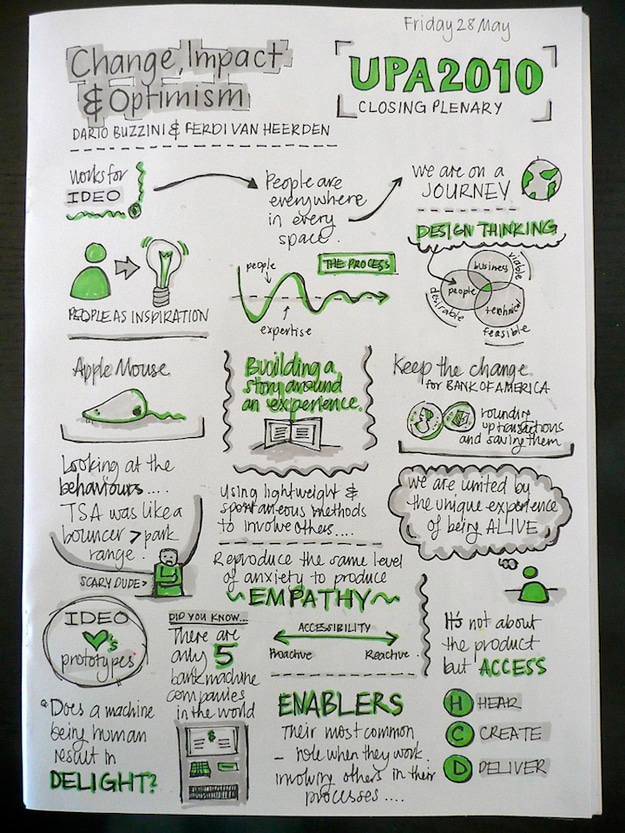 Friday 28 May
Change, Impact
& Optimism
UPA2010
CLOSING PLENARY
DARIO BUZZINI & FERDI VAN HEERDEN
Works for
IDEO
People are
everywhere
in every
space.
We are on a
JOURNEY
PEOPLE AS INSPIRATION
people
THE PROCESS
expertise
DESIGN THINKING
business
viable
people
technical
desirable
feasible
Apple Mouse
Building a
story around
an experience.
Keep the change
for BANK OF AMERICA
$
rounding
up transactions
and saving them
Looking at the
behaviours....
TSA was like a
bouncer > park
range.
SCARY DUDE>
Using lightweight &
spontaneous methods
to involve others....
We are united by
the unique experience
of being ALIVE
Reproduce the same level
of anxiety to produce
~EMPATHY~
IDEO
♥'s
prototypes
DID YOU KNOW...
There are
only 5
bank machine
companies
in the world
$
ACCESSIBILITY
Proactive
Reactive
It's not about
the product
but ACCESS
Does a machine
being human
result in
DELIGHT?
ENABLERS
Their most common
role when they work
involving others in their
processes....
H HEAR
C CREATE
D DELIVER